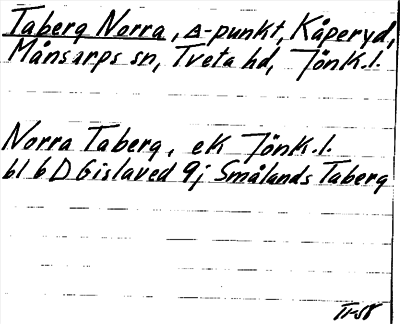 Taberg Norra, △-punkt, Kåperyd,
Månsarps sn, Tveta hd, Jönk.l.
Norra Taberg, ek Jönk.l.
bl 6D Gislaved 9j Smålands Taberg